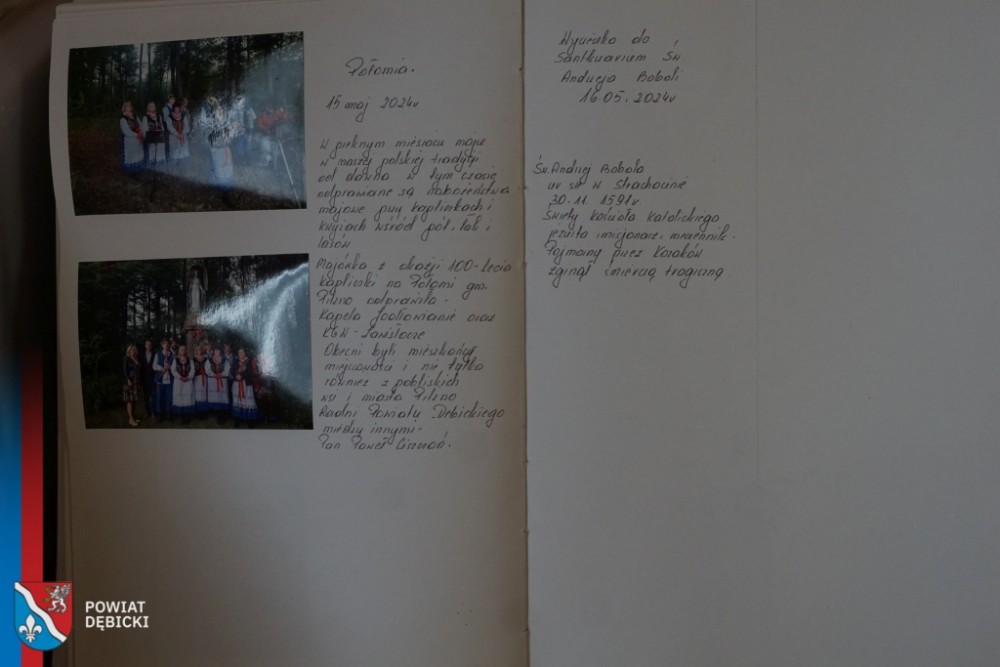 Połomia.
15 maj 2024r
W pięknym miesiącu maju
w naszej polskiej tradycji
od dawna w tym czasie
odprawiane są Nabożeństwa
majowe przy kapliczkach i
krzyżach wśród pól, łąk i
lasów
Majówkę z okazji 100-lecia
kapliczki na Połomi gm.
Pilzno odprawiła -
Kapela Jodłowianie oraz
KGW -
Obecni byli mieszkańcy
miejscowości i nie tylko
również z pobliskich
wsi i miasta Pilzno
Radni Powiatu Dębickiego
między innymi -
Pan Paweł
Wycieczka do
Sanktuarium Św
Andrzeja Boboli
16.05.2024r
Św. Andrzej Bobola
ur się w Strachocinie
30.11.1591r
Święty Kościoła Katolickiego
jezuita, misjonarz, męczennik.
Pojmany przez Kozaków
zginął śmiercią tragiczną
POWIAT
DĘBICKI